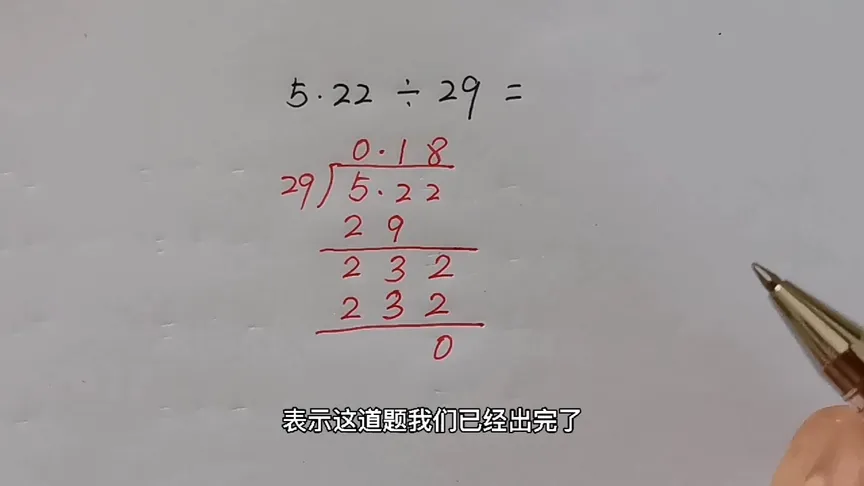 5.22 ÷ 29 =
0.18
29 5.22
29
232
232
0
表示这道题我们已经出完了